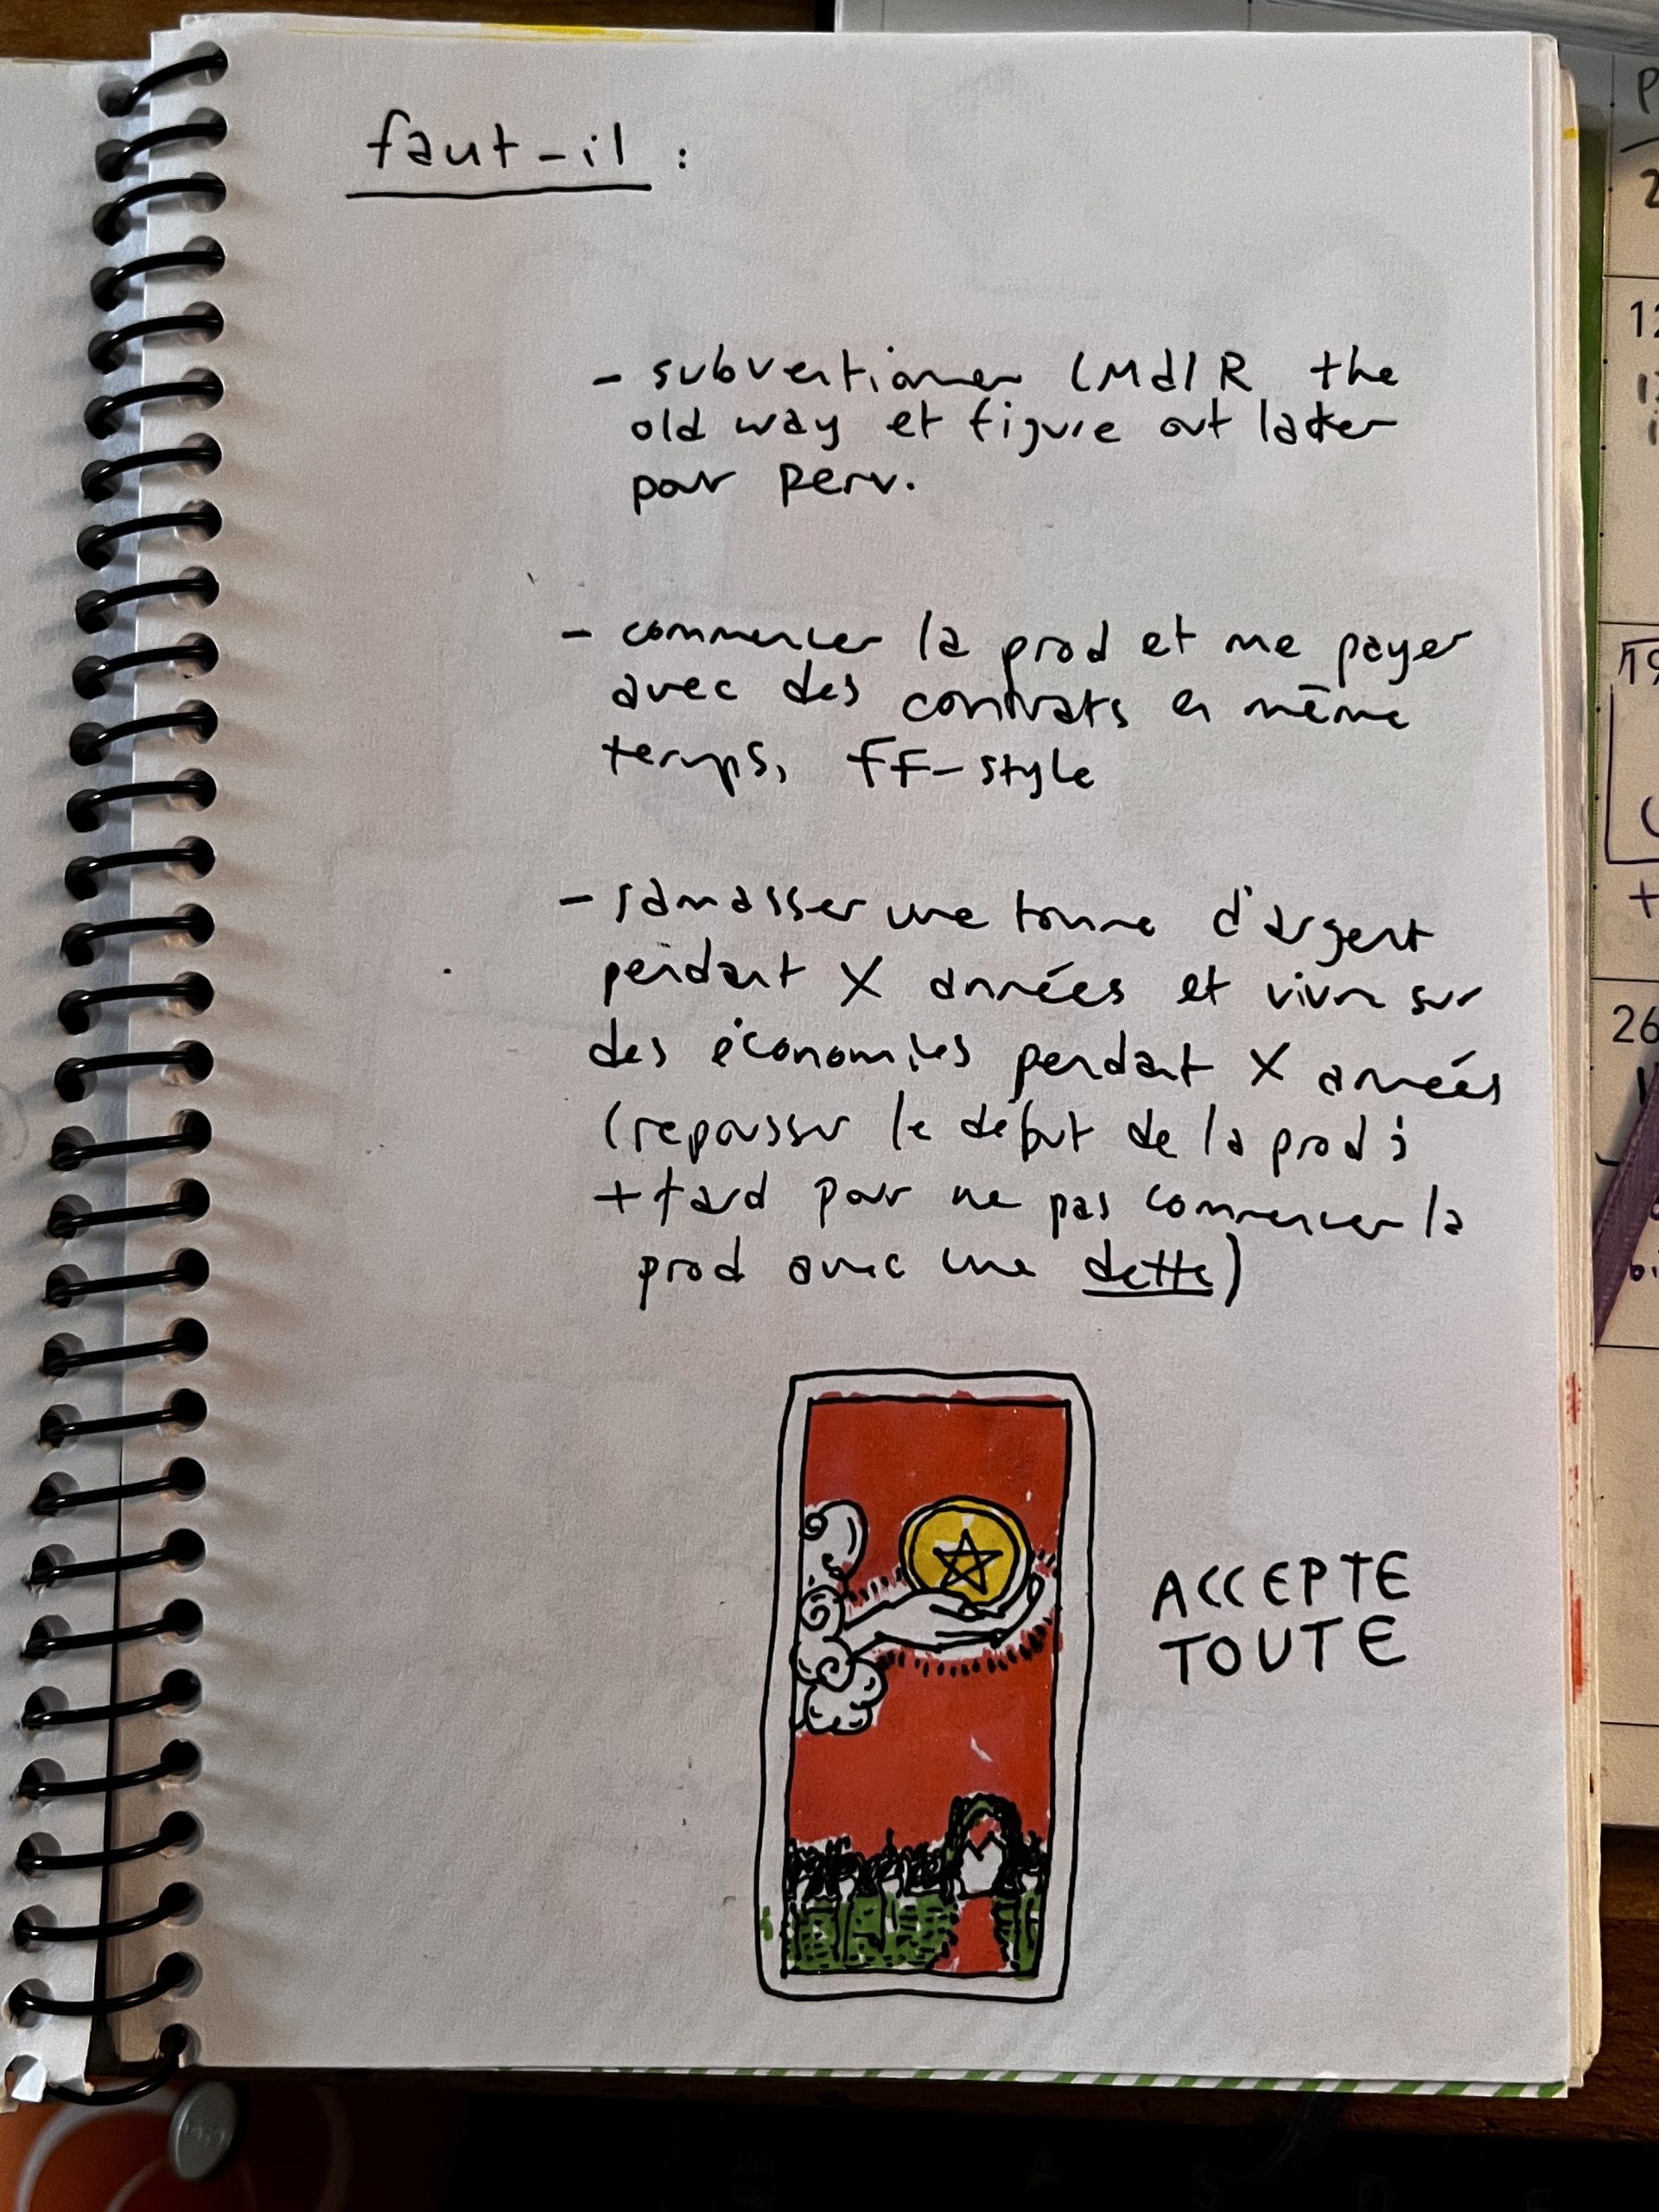 faut-il :
- subventionner LMdlR the
old way et figure out later
pour Perv.
- commencer la prod et me payer
avec des contrats en même
temps, FF-style
- ramasser une tonne d'argent
pendant X années et vivre sur
des économies pendant X années
(repousser le début de la prod à
+ tard pour ne pas commencer la
prod avec une dette)
ACCEPTE
TOUTE
26